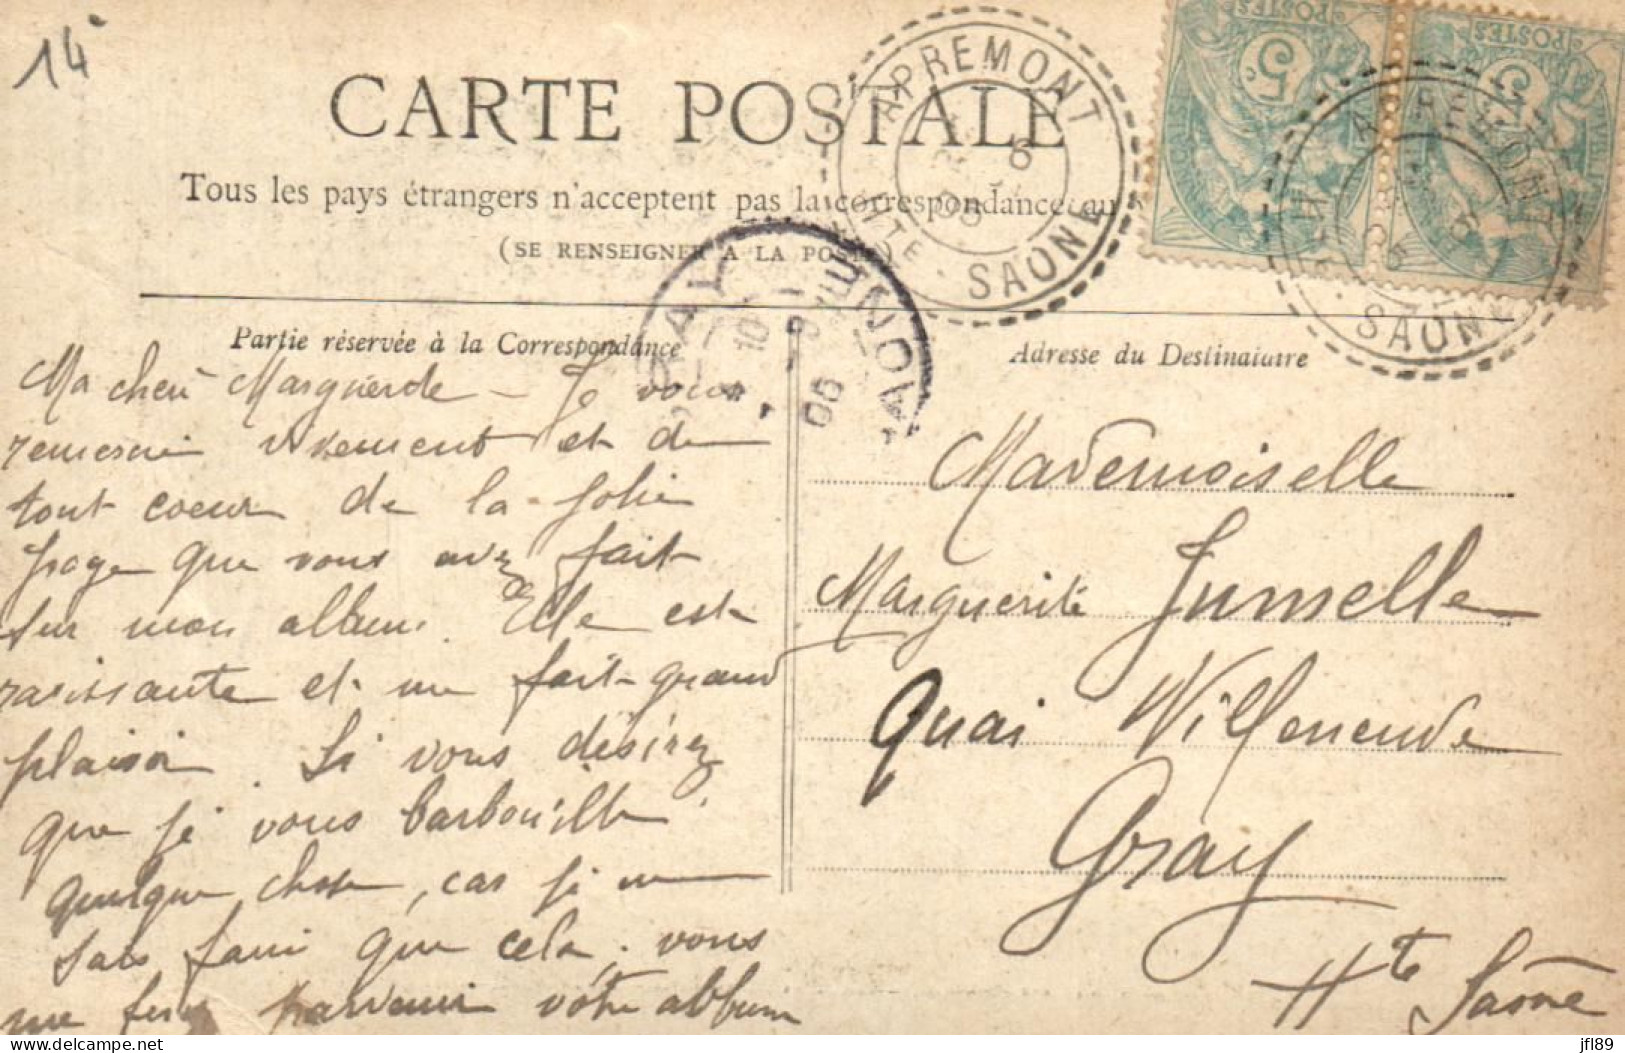 14
CARTE POSTALE
Tous les pays étrangers n'acceptent pas la correspondance au
(SE RENSEIGNER A LA POSTE)
APREMONT
6
05
HTE - SAONE
5c
POSTES
5c
POSTES
APREMONT
HTE - SAONE
GRAY
HTE SAONE
Partie réservée à la Correspondance
Ma cherè Marguerite - Je vous
remercie vivement et de
tout coeur de la jolie
page que vous avez fait
sur mon album. Elle est
ravissante et me fait grand
plaisir. Si vous désirez
que je vous barbouille
quelque chose, car je ne
sais faire que cela, vous
me ferez parvenir vôtre album
Adresse du Destinataire
Mademoiselle
Marguerite Jumelle
Quai Villeneuve
Gray
Hte Saône
delcampe.net
jfl89